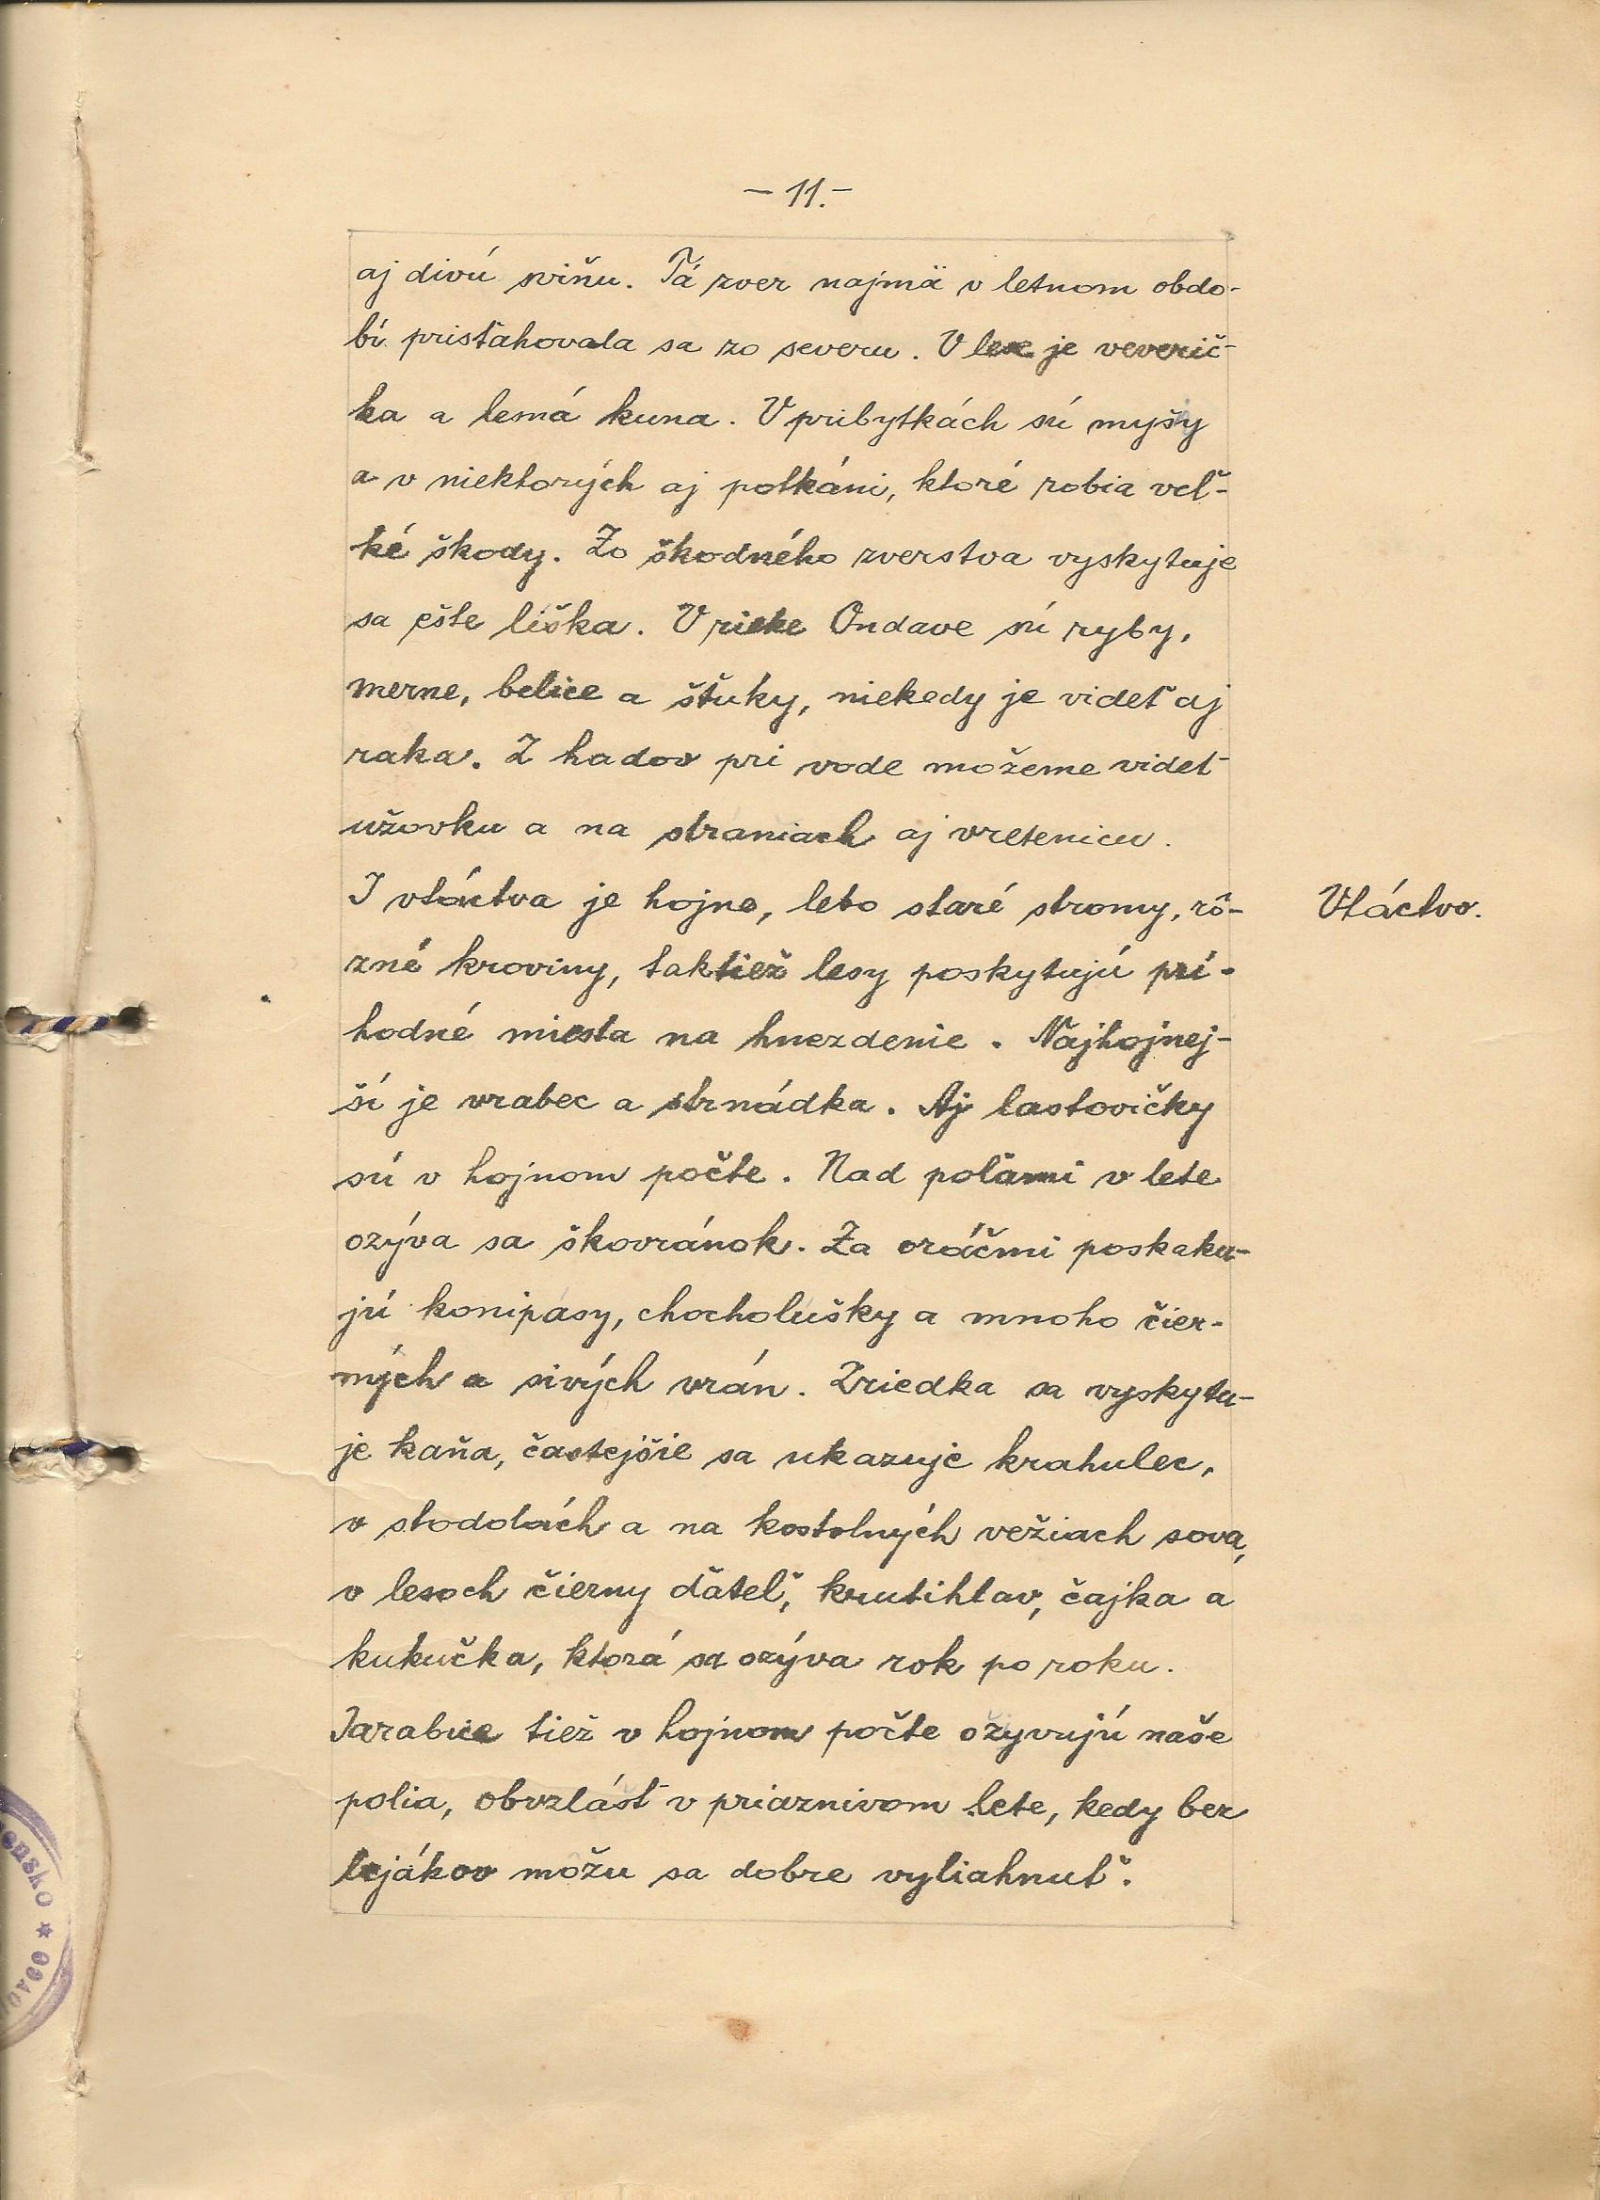 - 11. -
aj divú sviňu. Tá zver najmä v letnom obdo-
bí prisťahovala sa zo severu. V lese je veverič-
ka a lesná kuna. V pribytkách sú myšy
a v niektorých aj potkáni, ktoré robia veľ-
ké škody. Zo škodného zverstva vyskytuje
sa ešte líška. V rieke Ondave sú ryby,
merne, belice a štuky, niekedy je videť aj
raka. Z hadov pri vode možeme videť
užovku a na straniach aj vretenicu.
I vtáctva je hojne, lebo staré stromy, rô-
Vtáctvo.
zné kroviny, taktiež lesy poskytujú prí-
hodné miesta na hnezdenie. Najhojnej-
ší je vrabec a strnádka. Aj lastovičky
sú v hojnom počte. Nad poľami v lete
ozýva sa škovránok. Za oráčmi poskaku-
jú konipásy, chocholušky a mnoho čier-
ných a sivých vrán. Zriedka sa vyskytu-
je kaňa, častejšie sa ukazuje krahulec,
v stodolách a na kostolných vežiach sova,
v lesoch čierny ďateľ, krutihlav, čajka a
kukučka, ktorá sa ozýva rok po roku.
Jarabice tiež v hojnom počte ožyvujú naše
polia, obvzlášť v priaznivom lete, kedy bez
lejákov môžu sa dobre vyliahnuť.